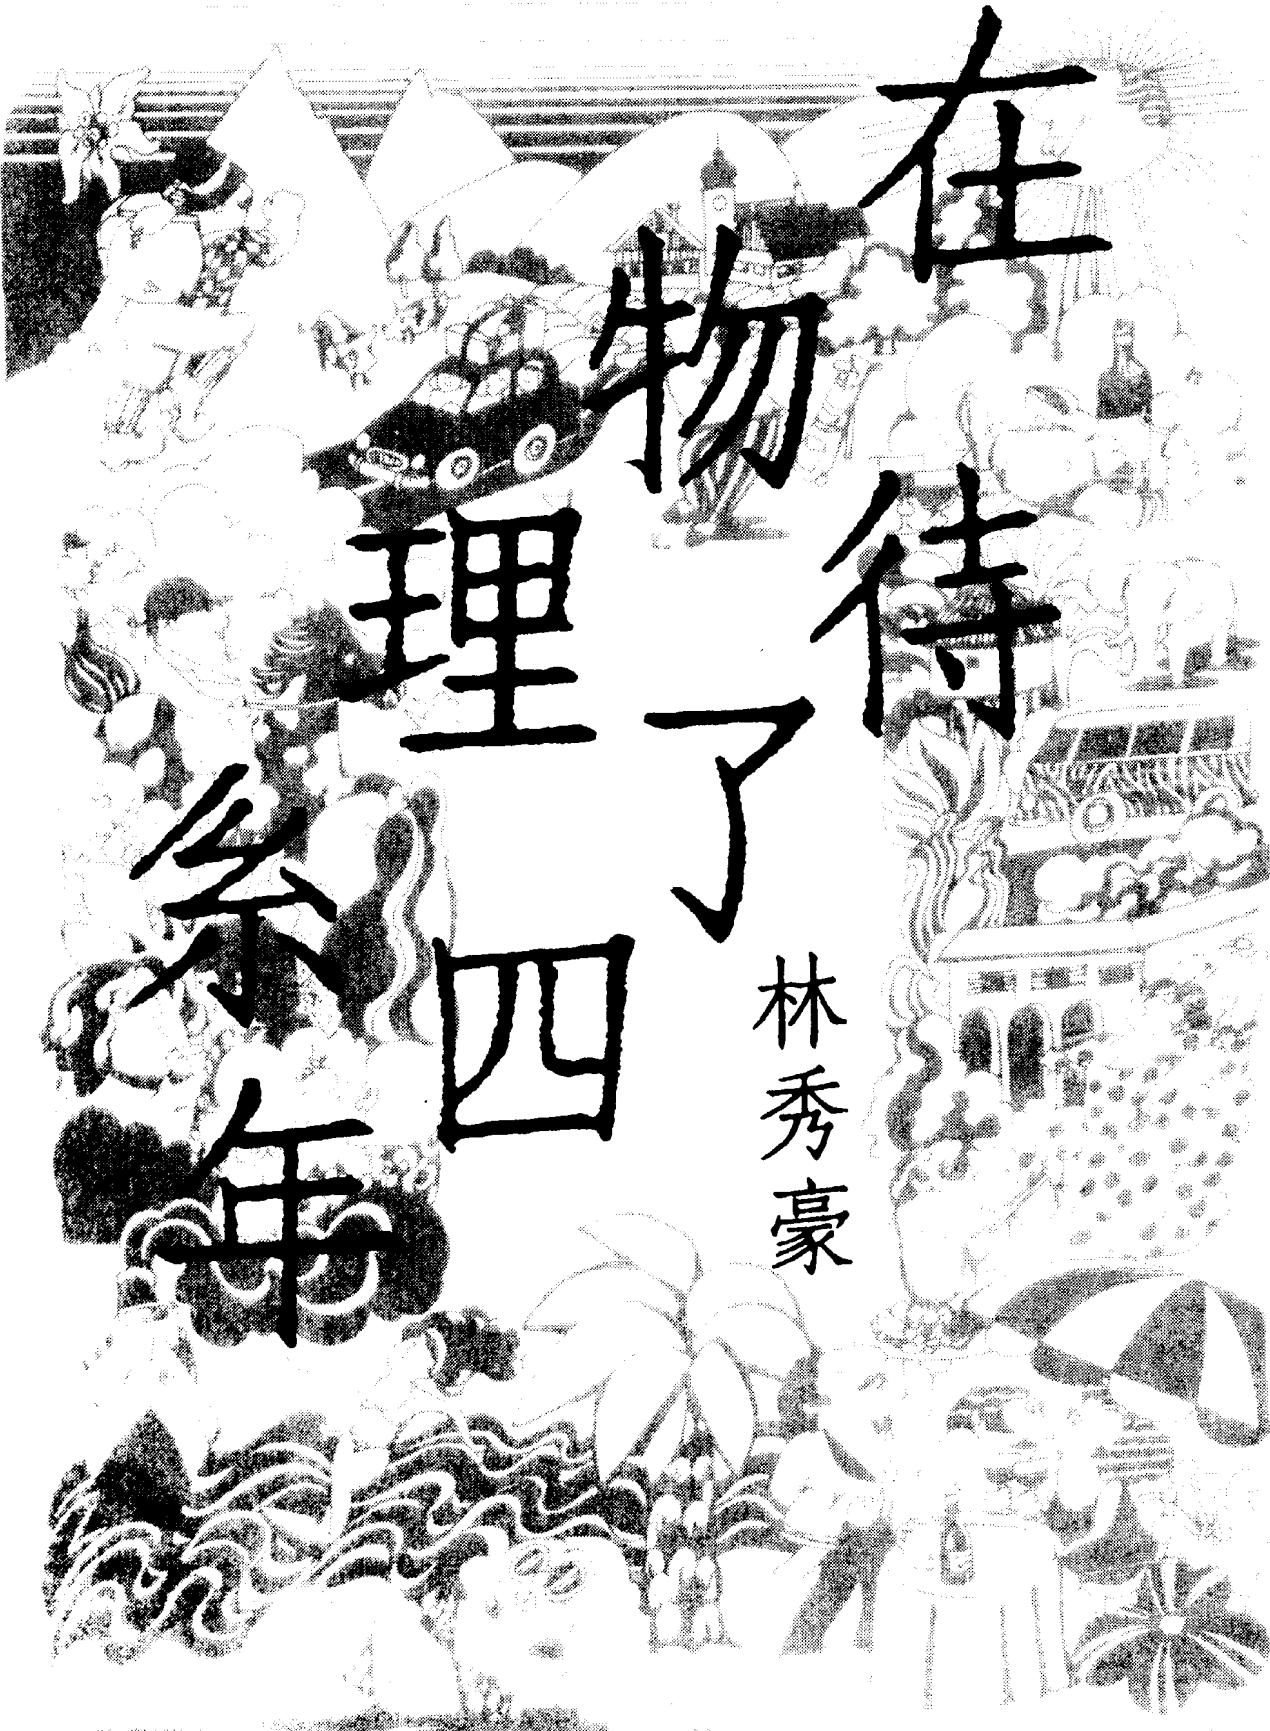 在物理系
待了四年
林秀豪